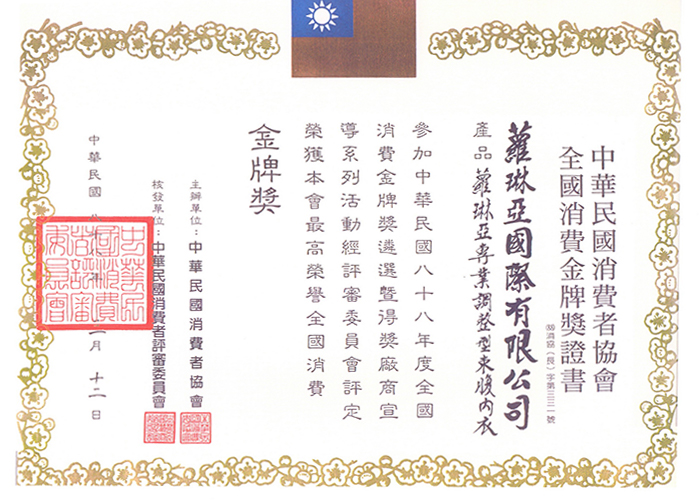 中華民國消費者協會
全國消費金牌獎證書
㈱消協（長）字第三三一號
蘿琳亞國際有限公司
產品蘿琳亞專業調整型束腹內衣
參加中華民國八十八年度全國
消費金牌獎遴選暨得獎廠商宣
導系列活動經評審委員會評定
榮獲本會最高榮譽全國消費
金牌獎
主辦單位：中華民國消費者協會
核發單位：中華民國消費者評審委員會
中華民國
月十二日